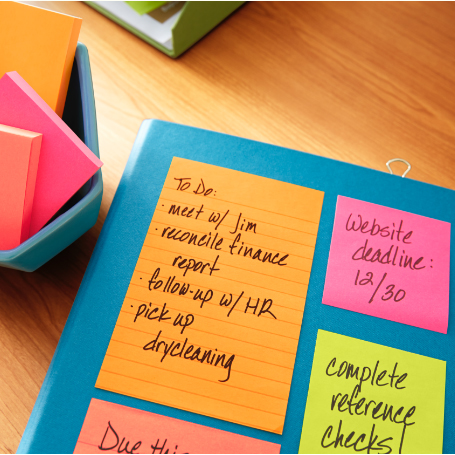 To Do:
· meet w/ Jim
· reconcile finance
report
· follow-up w/ HR
· pick up
drycleaning
Website
deadline:
12/30
complete
reference
checks!
Due this